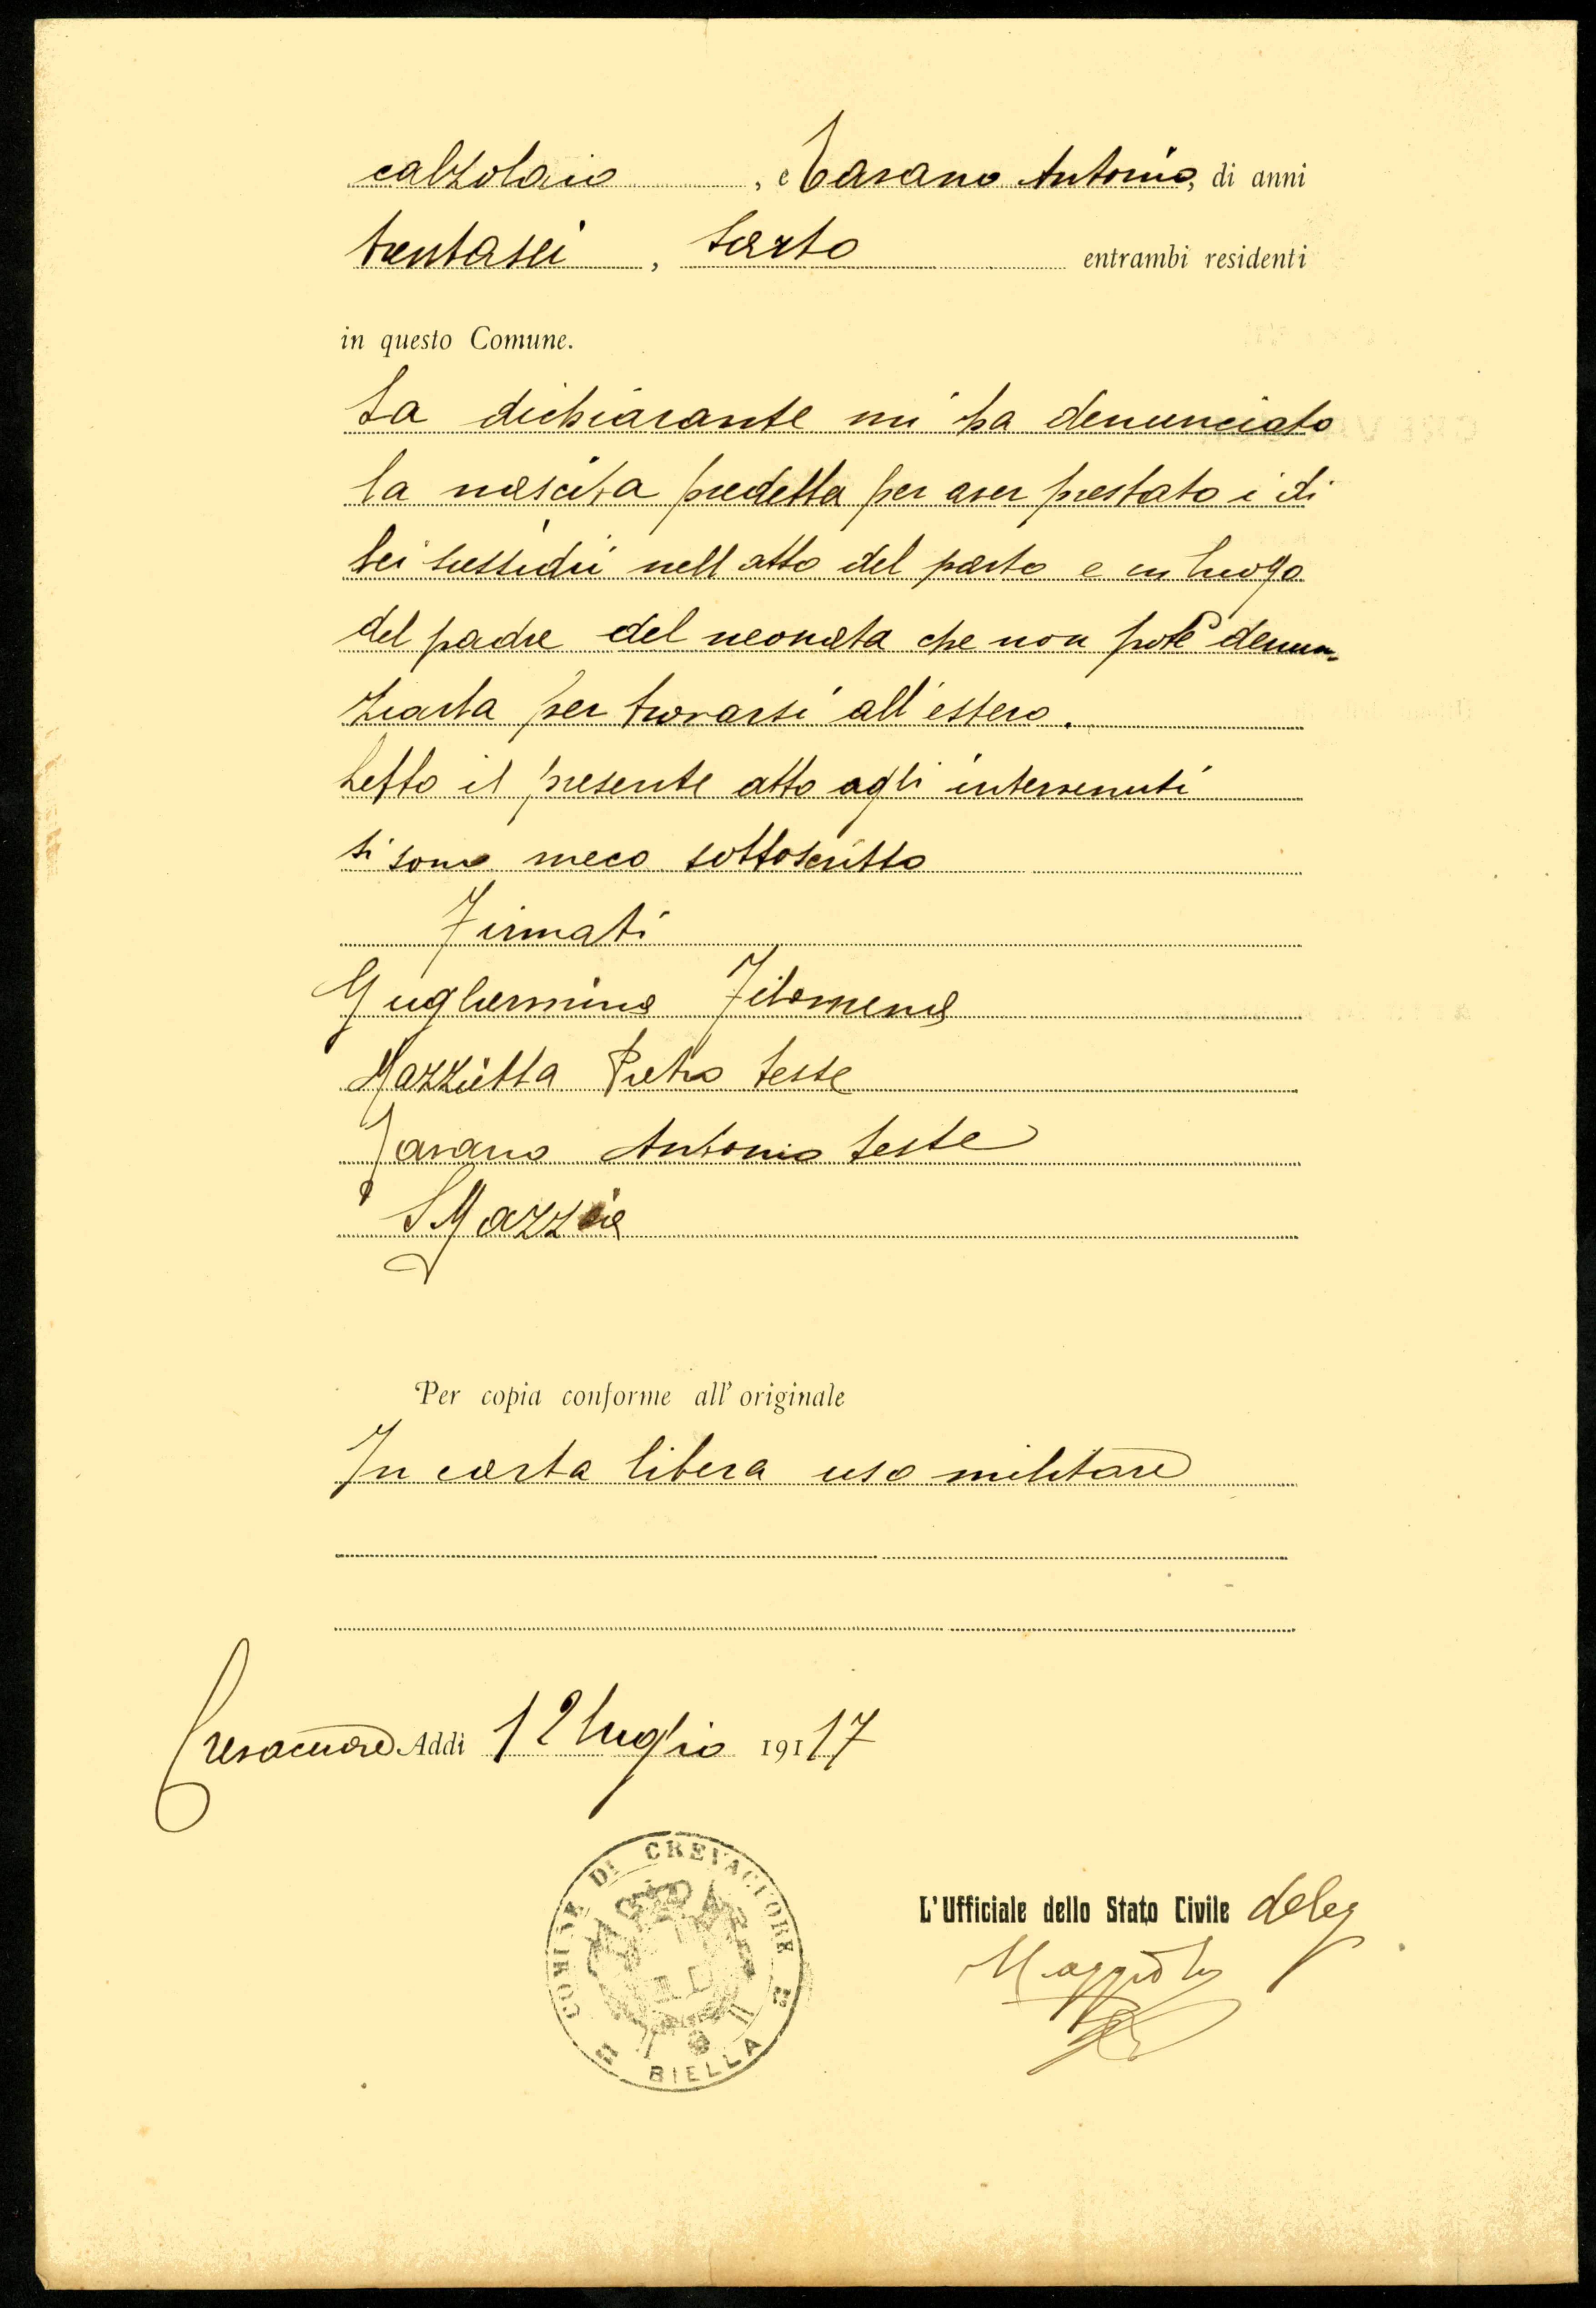 calzolaio, e Tarano Antonio, di anni
trentasei, sarto entrambi residenti
in questo Comune.
La dichiarante mi ha denunciato
la nascita predetta per aver prestato i di
lei sussidii nell atto del parto e in luogo
del padre del neonata che non potè denun-
ziarla per trovarsi all'estero.
Letto il presente atto agli intervenuti
si sono meco sottoscritto
Firmati
Gugliermina Filomena
Mazzietta Pietro teste
Tarano Antonio teste
Mazzia
Per copia conforme all'originale
In carta libera uso militare
Crevacuore Addì 12 luglio 19117
COMUNE DI CREVACUORE
BIELLA
L'Ufficiale dello Stato Civile deleg